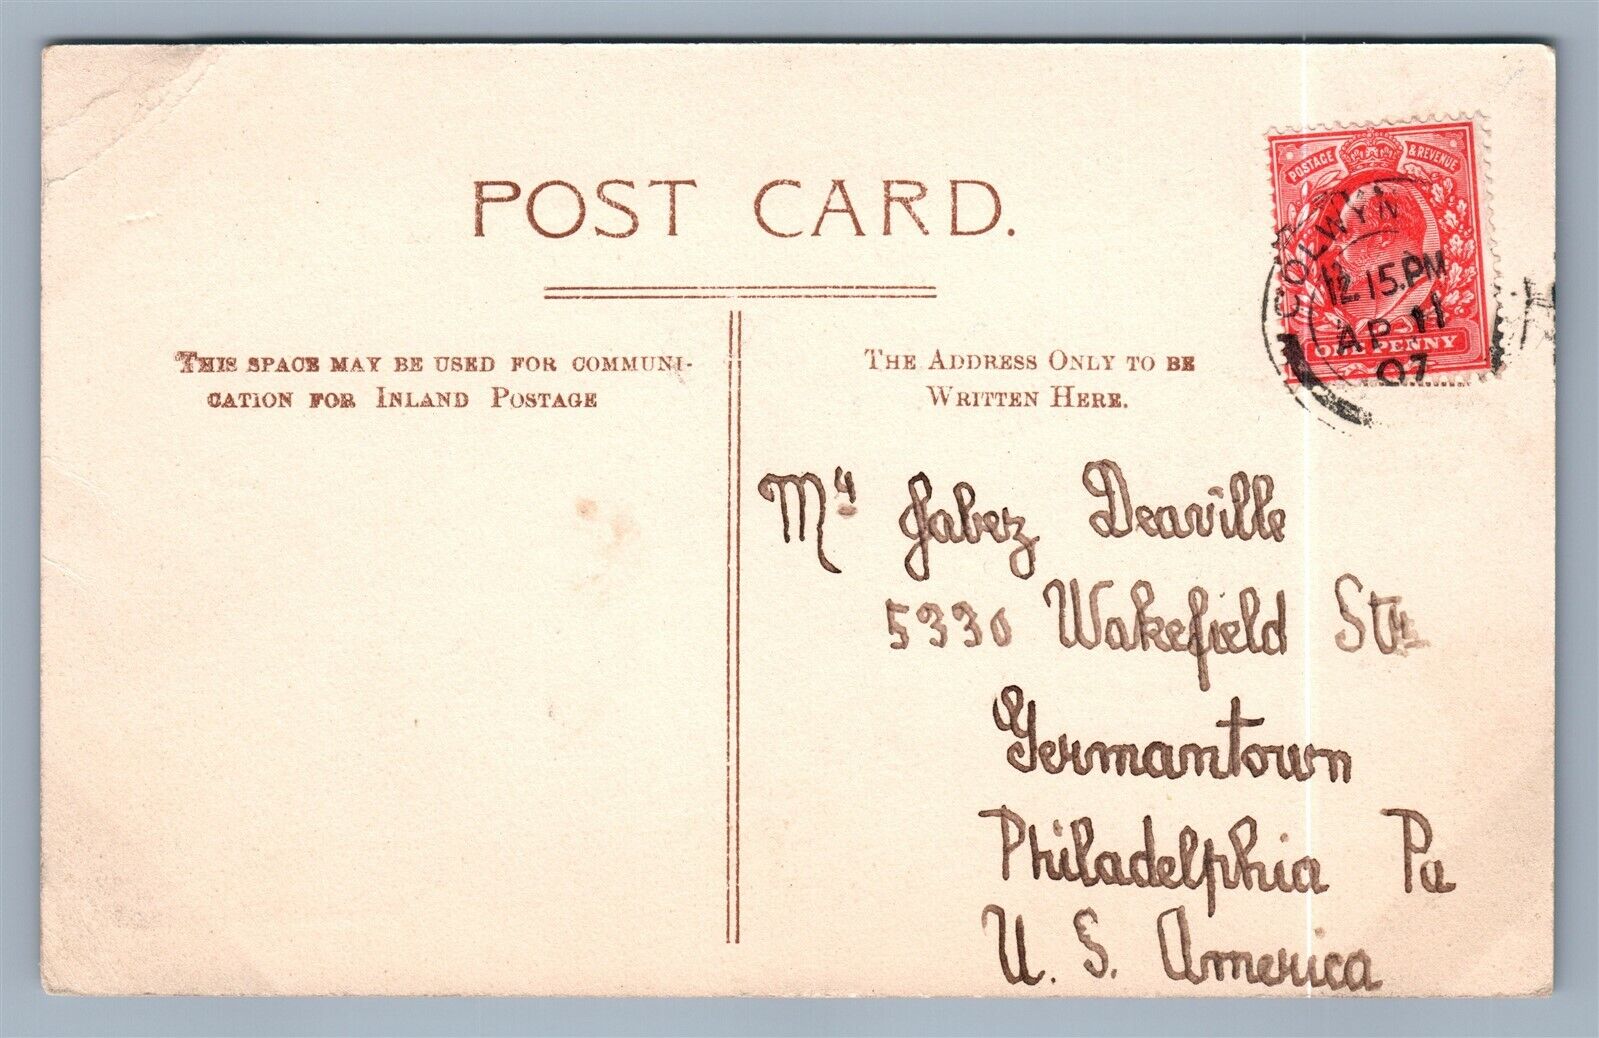 POST CARD.
THIS SPACE MAY BE USED FOR COMMUNI-
CATION FOR INLAND POSTAGE
THE ADDRESS ONLY TO BE
WRITTEN HERE.
POSTAGE & REVENUE
ONE PENNY
COLWYN
12.15.PM
AP 11
07
Mr Jabez Deaville
5330 Wakefield St
Germantown
Philadelphia Pa
U. S. America